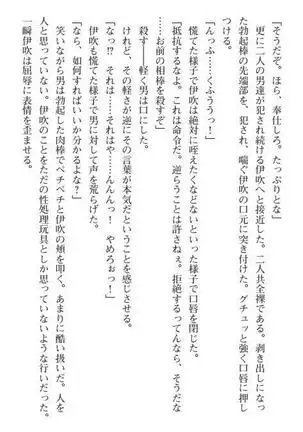 「そうだぞ。ほら、奉仕しろ。たっぷりとな」
更に二人の男達が犯され続ける伊吹へと接近した。二人共全裸である。剥き出しになっ
た勃起棒の先端部を、犯され、喘ぐ伊吹の口元に突き付けた。グチュッと強く口唇に押し
つける。
「んっふ……くふううっ！」
慌てた様子で伊吹は絶対に咥えたくなどないといった様子で口唇を閉じた。
「抵抗するなよ。これは命令だ。逆らうことは許さねぇ。拒絶するってんなら、そうだな
……お前の相棒を殺すぞ」
殺す――軽く男は口にした。
けれど、その軽さが逆にその言葉が本気だということを感じさせる。
「なっ!?　それは……それはやんっ！　やめろぉっ！」
伊吹も慌てた様子で男に対して声を荒げた。
「なら、如何すればいいか分かるよな？」
笑いながら男は勃起した肉棒でペチペチと伊吹の頬を叩く。あまりに酷い扱いだ。人を
人と思っていない。伊吹のことをただの性処理玩具としか思っていないような行いだった。
一瞬伊吹は屈辱に表情を歪ませる。